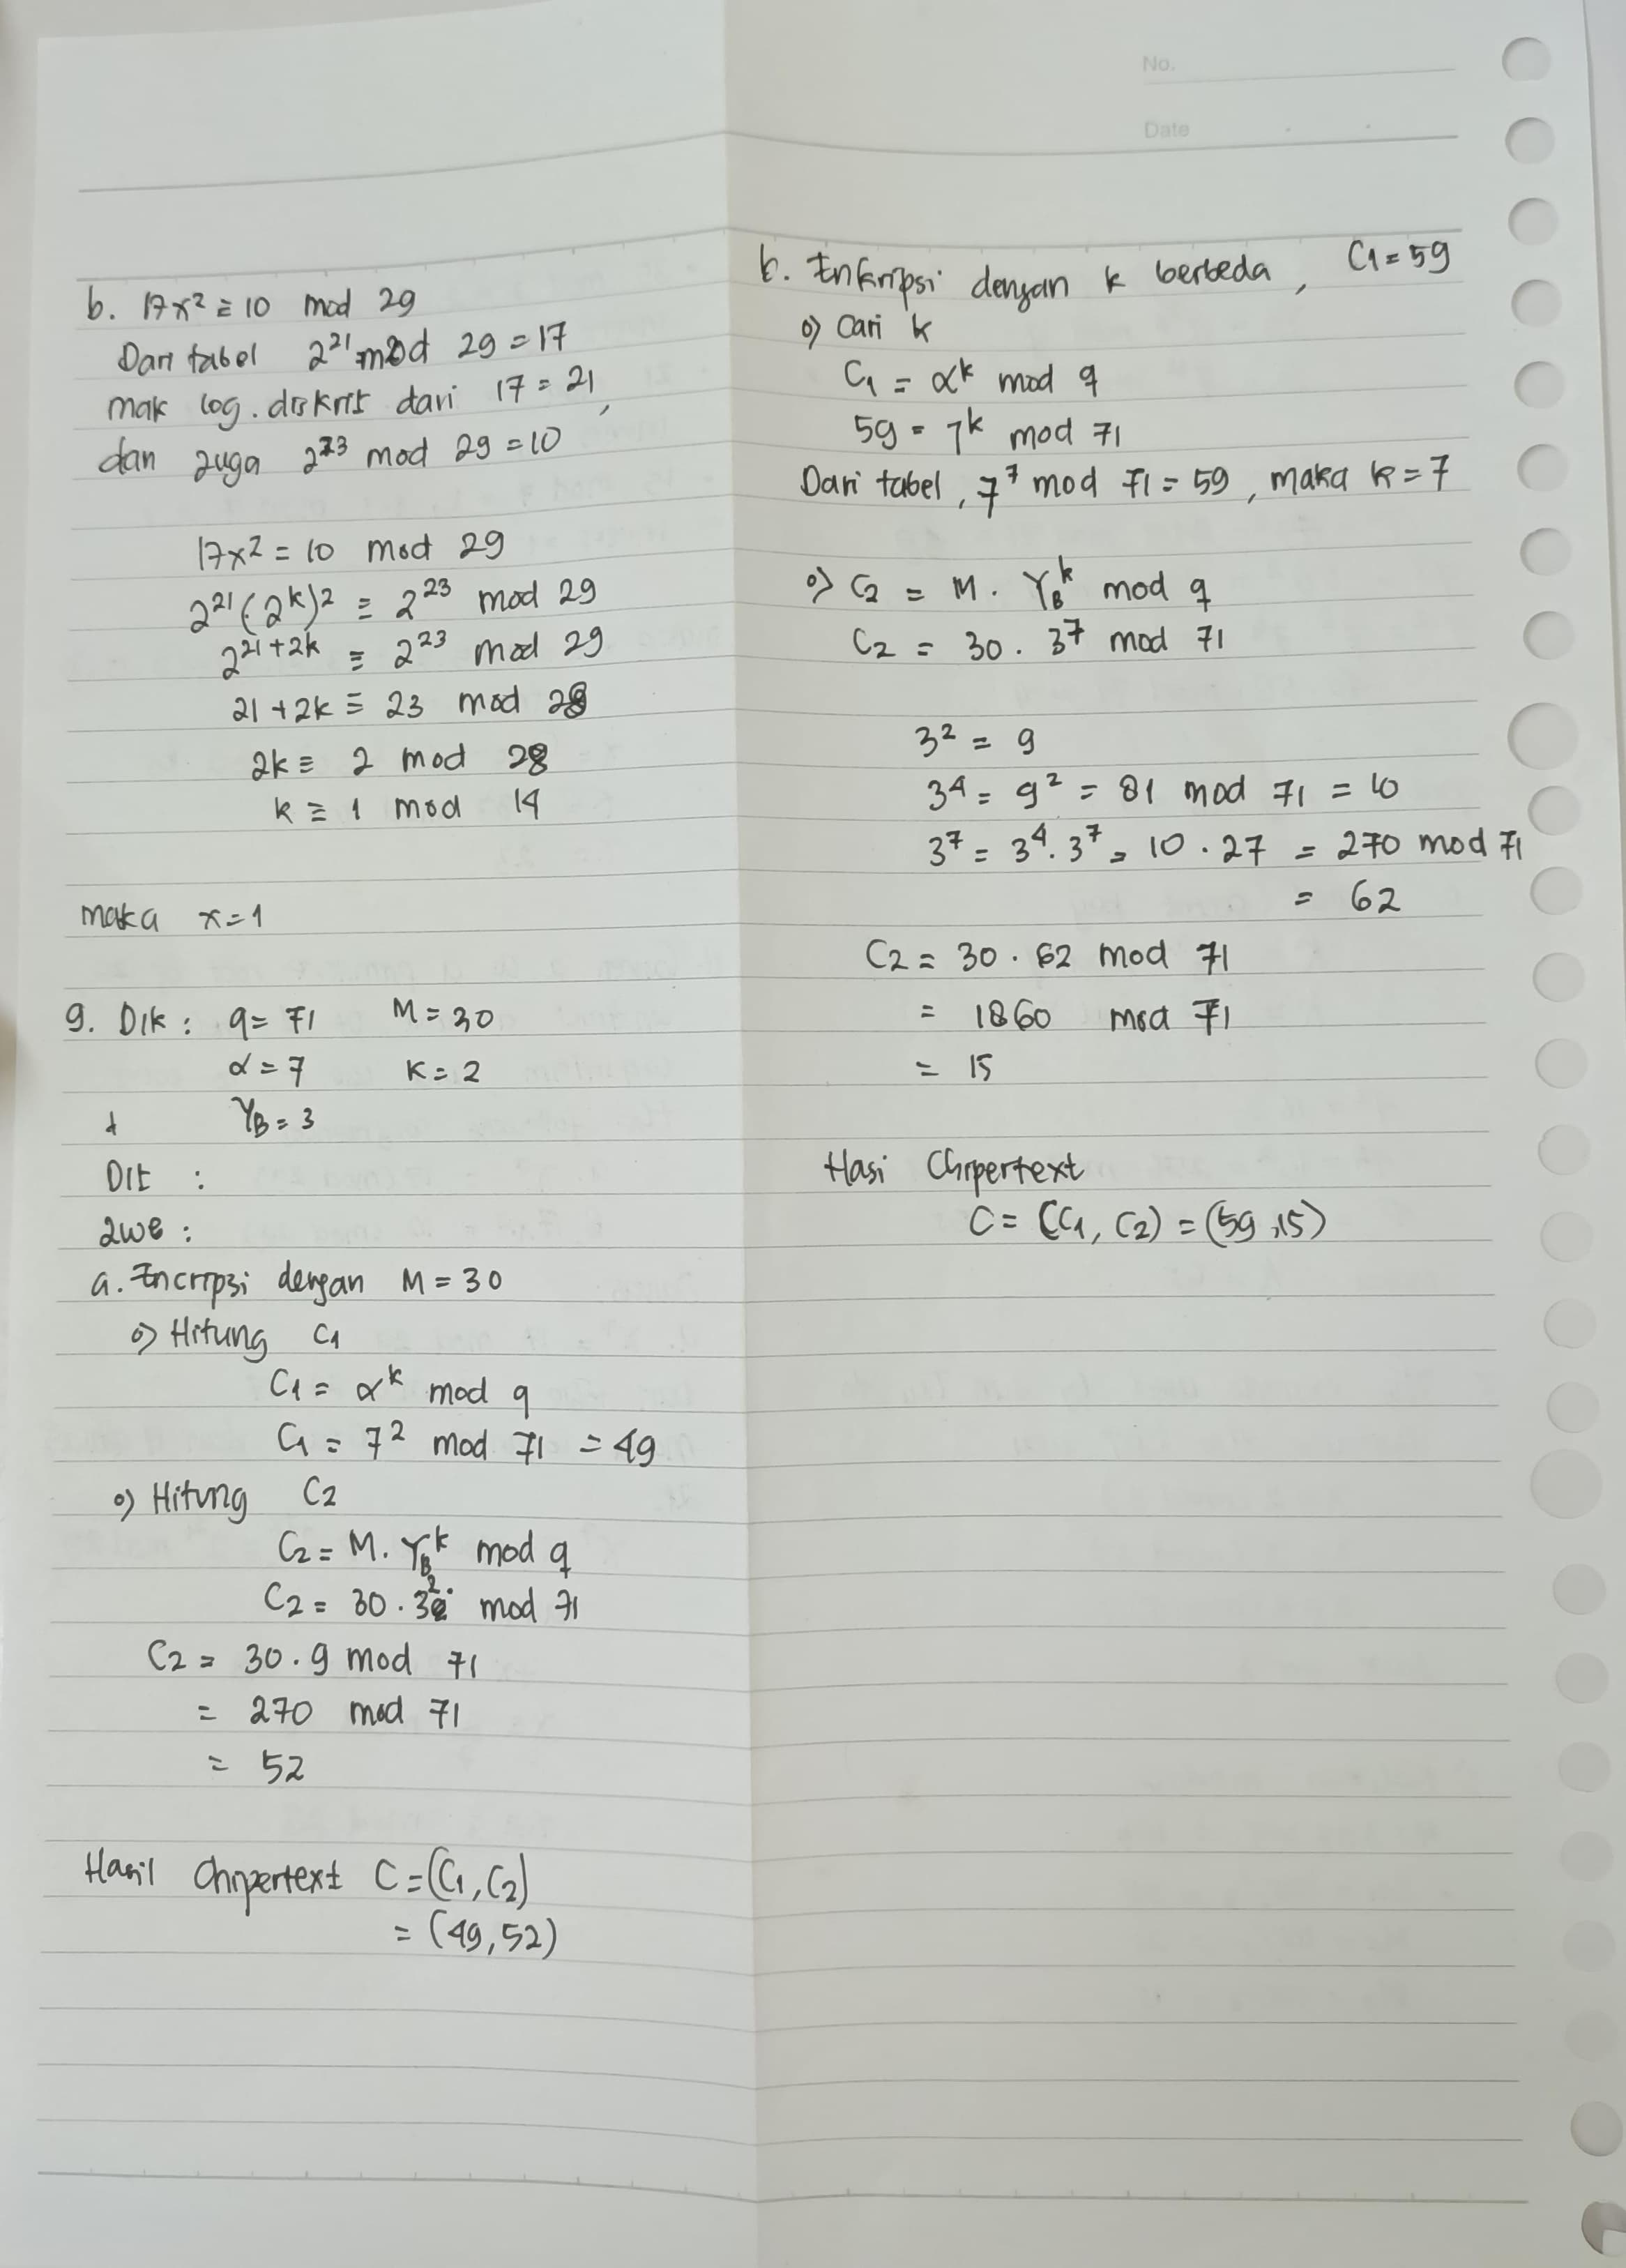 No.
Date
b. 17x² ≡ 10 mod 29
Dari tabel 2²¹ mod 29 = 17
mak log. diskrit dari 17 = 21,
dan juga 2²³ mod 29 = 10
17x² = 10 mod 29
2²¹(2ᵏ)² ≡ 2²³ mod 29
2²¹⁺²ᵏ ≡ 2²³ mod 29
21 + 2k ≡ 23 mod 28
2k ≡ 2 mod 28
k ≡ 1 mod 14
maka x = 1
9. Dik : q = 71 M = 30
α = 7 K = 2
Y_B = 3
Dit :
Jwb :
a. Encripsi dengan M = 30
o) Hitung C1
C1 = αᵏ mod q
C1 = 7² mod 71 = 49
o) Hitung C2
C2 = M. Y_Bᵏ mod q
C2 = 30 . 3² mod 71
C2 = 30 . 9 mod 71
= 270 mod 71
= 52
Hasil Chipertext C = (C1, C2)
= (49, 52)
b. Enkripsi dengan k berbeda, C1 = 59
o) Cari k
C1 = αᵏ mod q
59 = 7ᵏ mod 71
Dari tabel, 7⁷ mod 71 = 59, maka k = 7
o) C2 = M . Y_Bᵏ mod q
C2 = 30 . 3⁷ mod 71
3² = 9
3⁴ = 9² = 81 mod 71 = 10
3⁷ = 3⁴. 3⁷ = 10 . 27 = 270 mod 71
= 62
C2 = 30 . 62 mod 71
= 1860 mod 71
= 15
Hasi Chipertext
C = (C1, C2) = (59, 15)